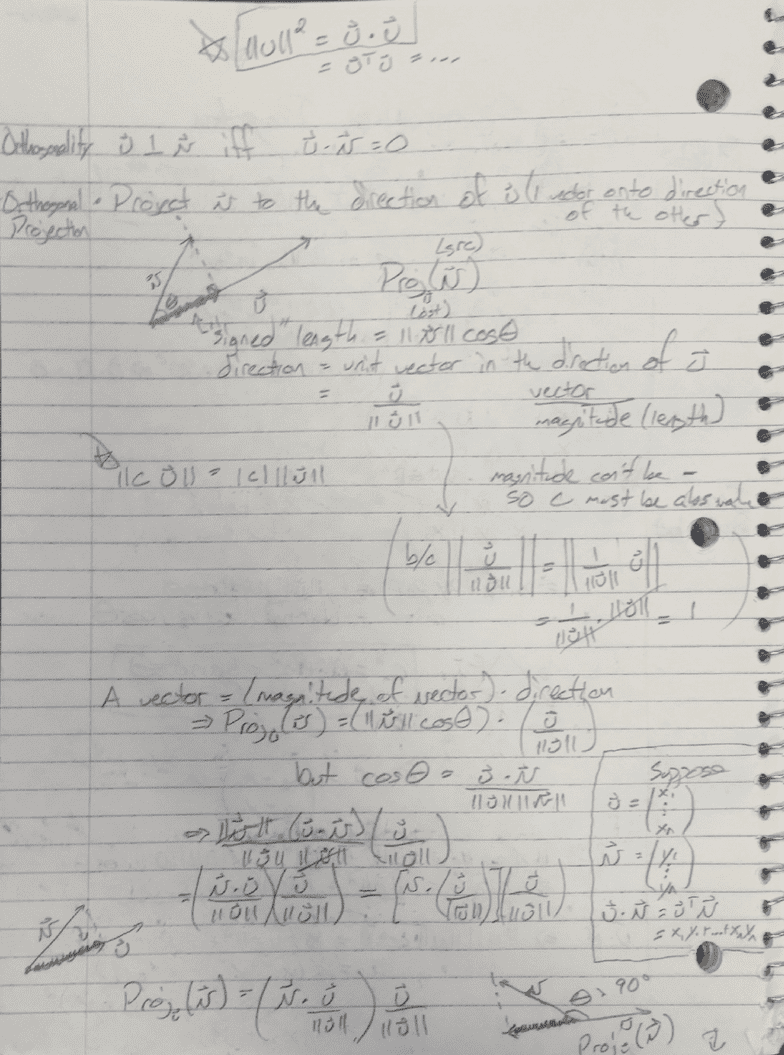 ||U||² = U⃗ · U⃗
= U⃗ᵀU⃗ = ...
Orthogonality U⃗ ⊥ v⃗ iff U⃗ · v⃗ = 0
Orthogonal Projection
• Project v⃗ to the direction of U⃗ (1 vector onto direction
of the other)
(src)
Proj_U⃗(v⃗)
(dst)
v⃗ θ U⃗
"signed" length = ||v⃗|| cosθ
direction = unit vector in the direction of U⃗
= U⃗ / ||U⃗|| vector / magnitude (length)
||c U⃗|| = |c| ||U⃗||
magnitude can't be −
so c must be abs value
(b/c || U⃗ / ||U⃗|| || = || 1/||U⃗|| U⃗ ||
= 1/||U⃗|| · ||U⃗|| = 1)
A vector = (magnitude of vector) · direction
⇒ Proj_U⃗(v⃗) = (||v⃗|| cosθ) · (U⃗ / ||U⃗||)
but cosθ = U⃗ · v⃗ / ||U⃗|| ||v⃗||
⇒ ||v⃗|| (U⃗ · v⃗) / ||U⃗|| ||v⃗|| (U⃗ / ||U⃗||)
= (v⃗ · U⃗ / ||U⃗||)(U⃗ / ||U⃗||) = [v⃗ · (U⃗ / ||U⃗||)](U⃗ / ||U⃗||)
Suppose
U⃗ = (x₁ ⋮ xₙ)
v⃗ = (y₁ ⋮ yₙ)
U⃗ · v⃗ = U⃗ᵀv⃗
= x₁y₁ + ... + xₙyₙ
v⃗ U⃗
Proj_U⃗(v⃗) = (v⃗ · U⃗ / ||U⃗||) U⃗ / ||U⃗||
v⃗ θ > 90°
U⃗
Proj_U⃗(v⃗)